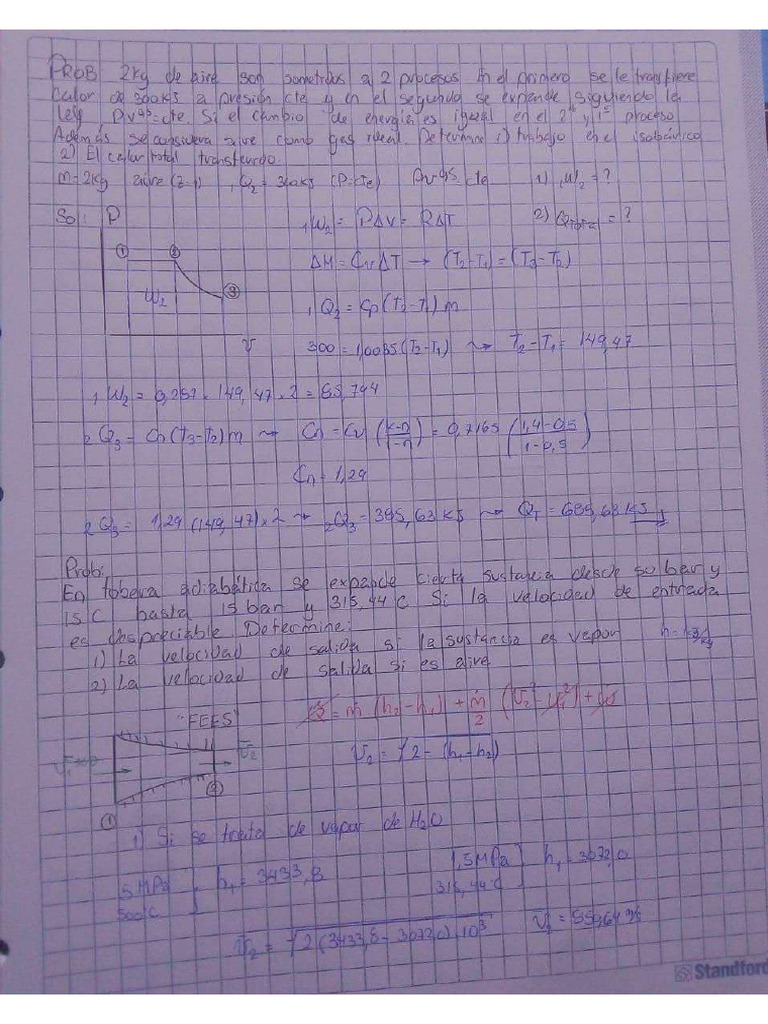 PROB 2kg de aire son sometidos a 2 procesos En el primero se le transfiere
Calor de 300KJ a presión cte y en el segundo se expande siguiendo la
ley PV^0.5=cte. Si el cambio de energía es igual en el 2do y 1er proceso
Además se considera aire como gas ideal. Determine 1) trabajo en el isobárico
2) El calor total transferido.
m=2kg aire (z=1) 1Q2=300KJ (P=cte) PV^0.5=cte 1) 1W2=?
Sol: P 1W2 = PΔV = RΔT 2) Qtotal=?
① ② ΔM=CvΔT → (T2-T1)=(T3-T2)
W2 ③
1Q2 = Cp(T2-T1)m
V 300=1,0035(T2-T1) T2-T1= 149,47
1W2 = 0,287 . 149,47 x 2 = 85,794
2Q3 = Cn(T3-T2)m Cn = Cv (k-n/1-n) = 0,7165 (1,4-0,5/1-0,5)
Cn=1,29
2Q3 = 1,29 (149,47) x 2 → 2Q3=385,63KJ QT=685,63KJ
Prob:
En tobera adiabática se expande cierta sustancia desde 50 bar y
15 C hasta 15 bar y 315,44 C Si la velocidad de entrada
es despreciable Determine:
1) La velocidad de salida si la sustancia es vapor
2) La velocidad de salida si es aire
"FEES" = ṁ (h2-h1) + ṁ/2 (V2²-V1²)+
V2 V2 = √2-(h1-h2)
① ②
1) Si se trata de vapor de H2O
5 MPa h1=3433,8 1,5MPa h1=3072,0
500°C 315,44°C
V2 = √2(3433,8-3072,0)10³ V2=850,64 m/s
Standford